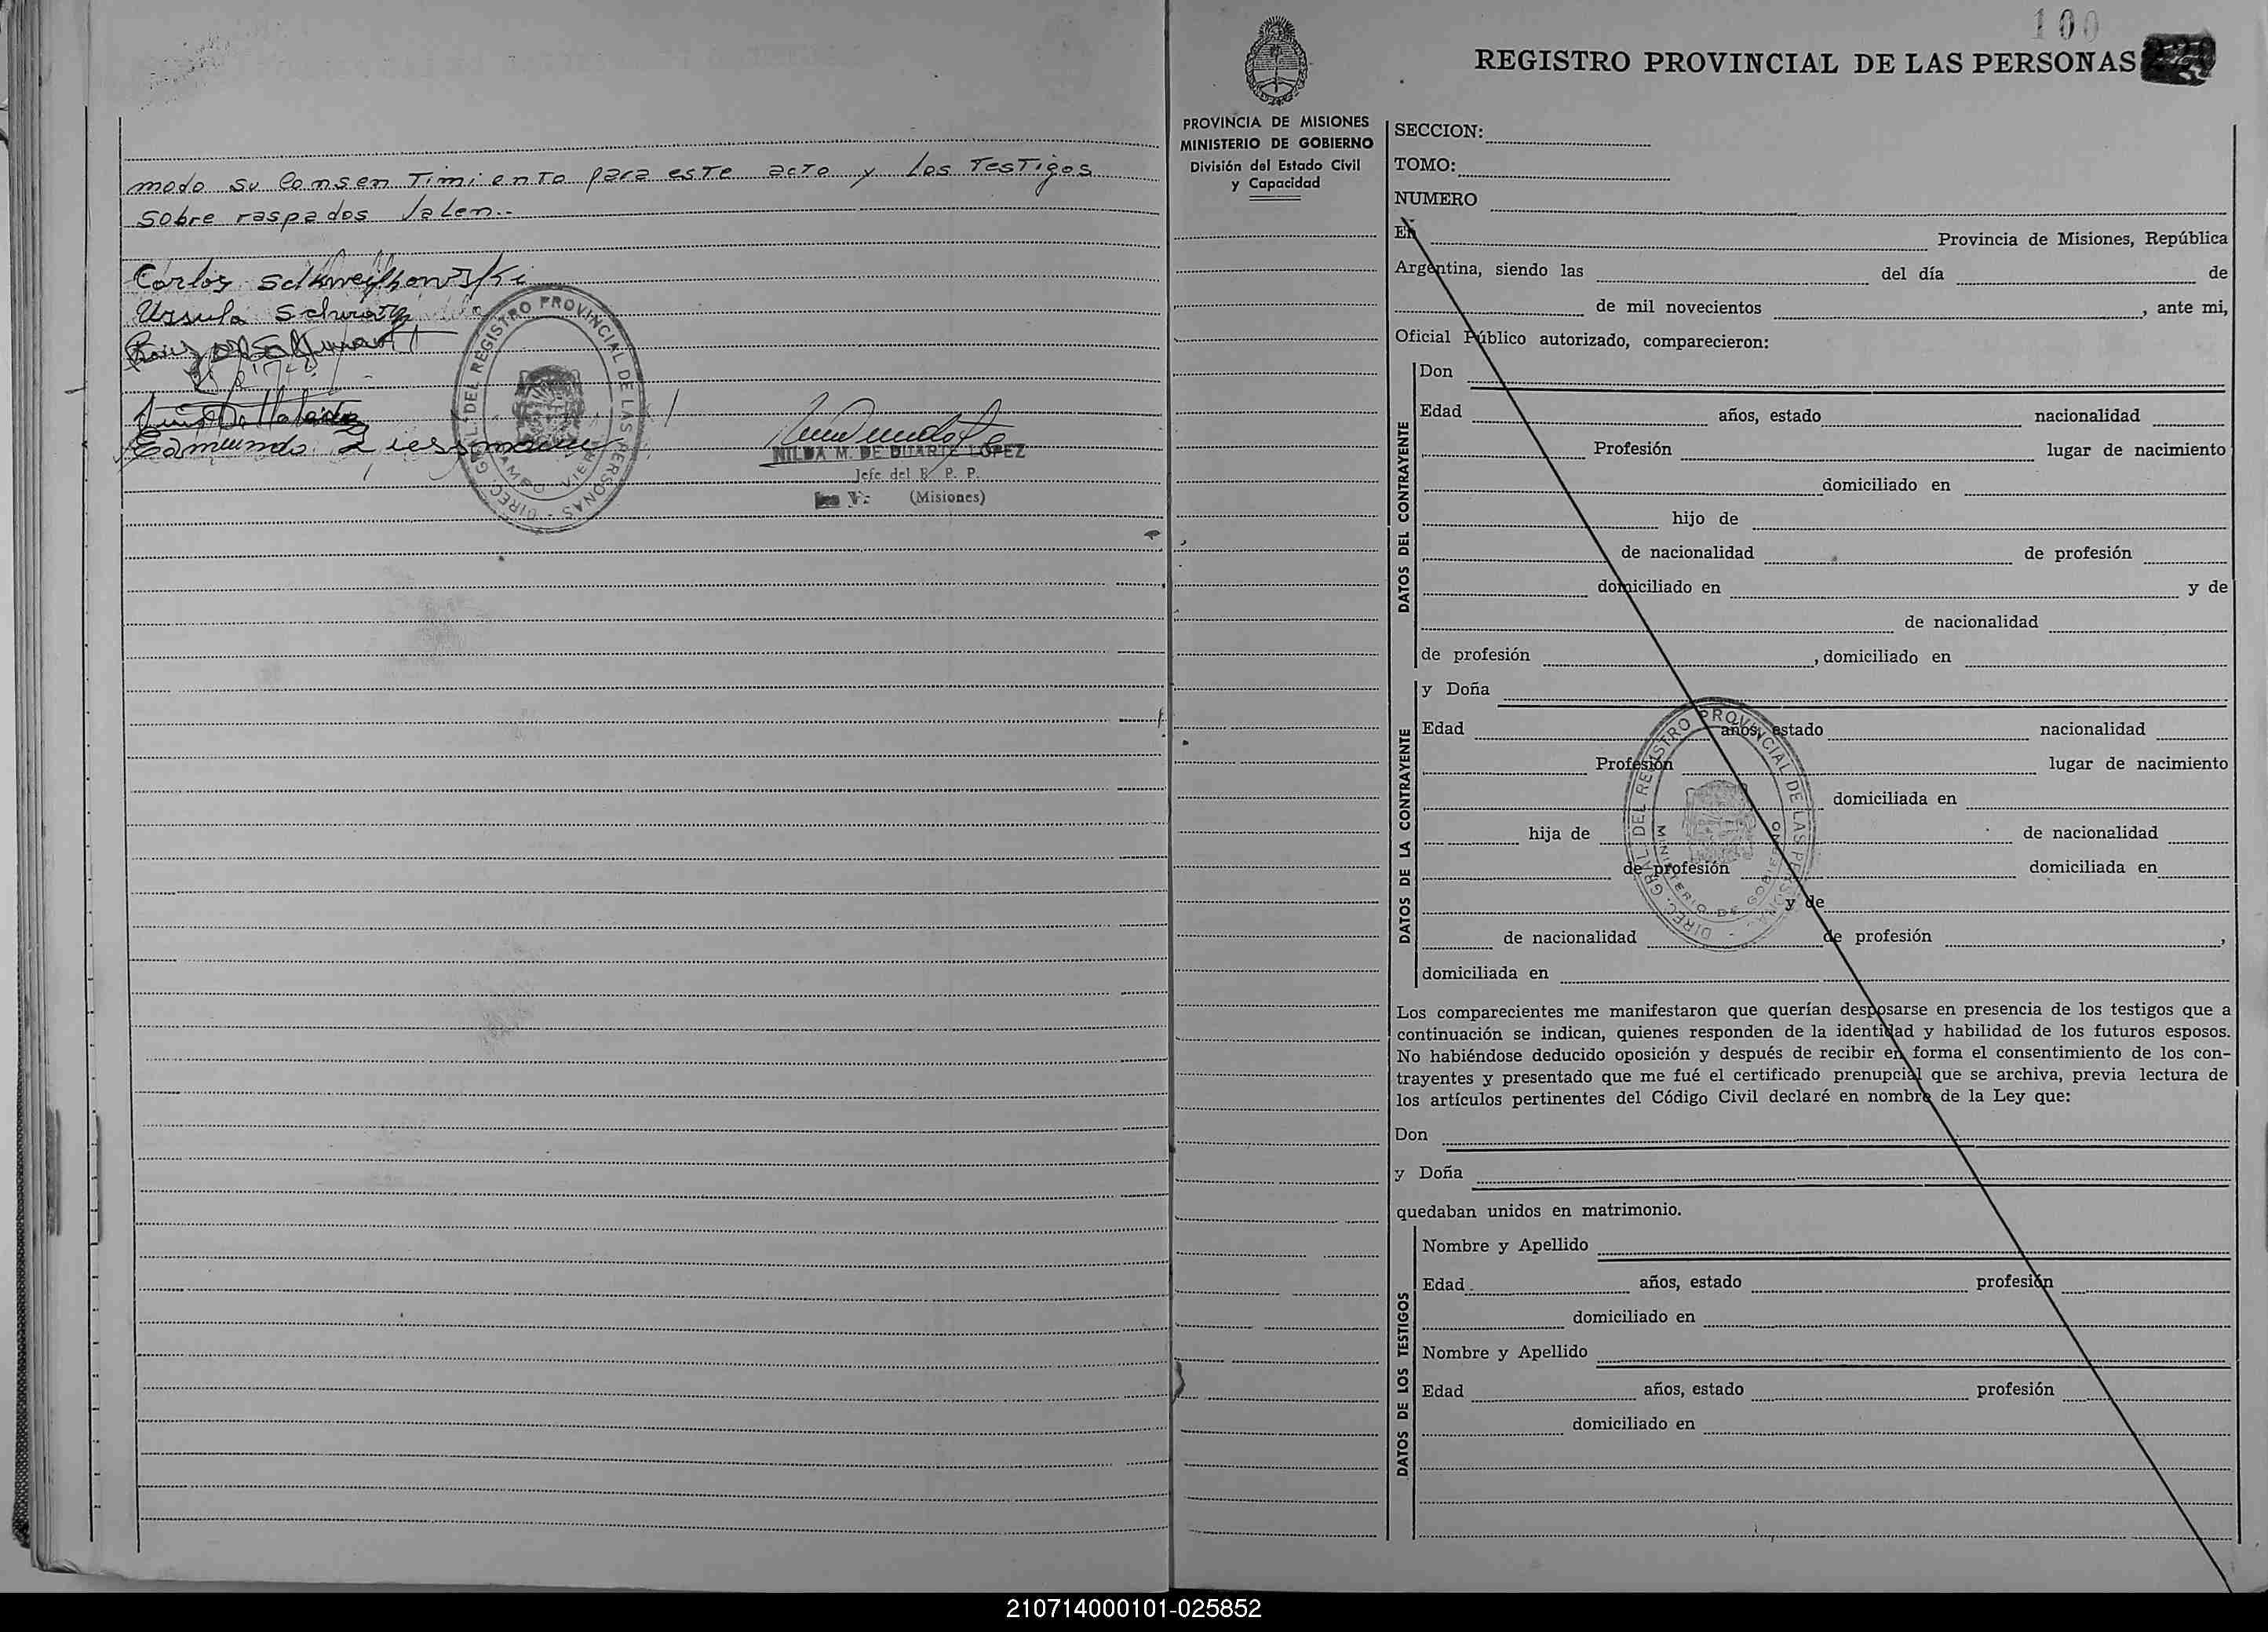 modo su Consentimiento para este acto y los Testigos
Sobre raspados Valen.-
Carlos
Ursula Schwarz
Edmundo
DIREC. GRAL. DEL REGISTRO PROVINCIAL DE LAS PERSONAS
CAMPO VIERA
NILDA M. DE DUARTE LOPEZ
Jefe del R. P. P.
(Misiones)
100
REGISTRO PROVINCIAL DE LAS PERSONAS
PROVINCIA DE MISIONES
MINISTERIO DE GOBIERNO
División del Estado Civil
y Capacidad
SECCION:
TOMO:
NUMERO
En Provincia de Misiones, República
Argentina, siendo las del día de
de mil novecientos , ante mi,
Oficial Público autorizado, comparecieron:
DATOS DEL CONTRAYENTE
Don
Edad años, estado nacionalidad
Profesión lugar de nacimiento
domiciliado en
hijo de
de nacionalidad de profesión
domiciliado en y de
de nacionalidad
de profesión , domiciliado en
DATOS DE LA CONTRAYENTE
y Doña
Edad años, estado nacionalidad
Profesión lugar de nacimiento
domiciliada en
hija de de nacionalidad
de profesión domiciliada en
y de
de nacionalidad de profesión ,
domiciliada en
DIREC. GRAL. DEL REGISTRO PROVINCIAL DE LAS PERSONAS
MINISTERIO DE GOBIERNO
Los comparecientes me manifestaron que querían desposarse en presencia de los testigos que a
continuación se indican, quienes responden de la identidad y habilidad de los futuros esposos.
No habiéndose deducido oposición y después de recibir en forma el consentimiento de los con-
trayentes y presentado que me fué el certificado prenupcial que se archiva, previa lectura de
los artículos pertinentes del Código Civil declaré en nombre de la Ley que:
Don
y Doña
quedaban unidos en matrimonio.
DATOS DE LOS TESTIGOS
Nombre y Apellido
Edad años, estado profesión
domiciliado en
Nombre y Apellido
Edad años, estado profesión
domiciliado en
210714000101-025852